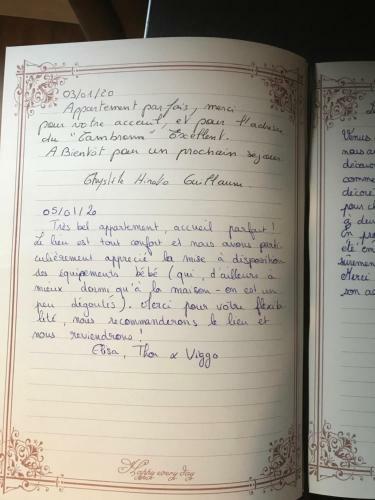 03/01/20
Appartement parfais, merci
pour votre acceuil, et pour l'adresse
du "Cambronne" Excellent.
A Bientôt pour un prochain séjour
Hinako Guillaume
05/01/20
Très bel appartement, accueil parfait !
Le lieu est tout confort et nous avons parti-
culièrement apprécié la mise à disposition
des équipements bébé (qui, d'ailleurs a
mieux dormi qu'à la maison - on est un
peu dégoutés). Merci pour votre flexibi-
lité, nous recommanderons le lieu et
nous reviendrons !
Elisa, Thor & Viggo
Happy every day
Venus
nous a
décou
comme
décoré
pour ch
& deu
En pr
été en
sûremen
Merci
son ac